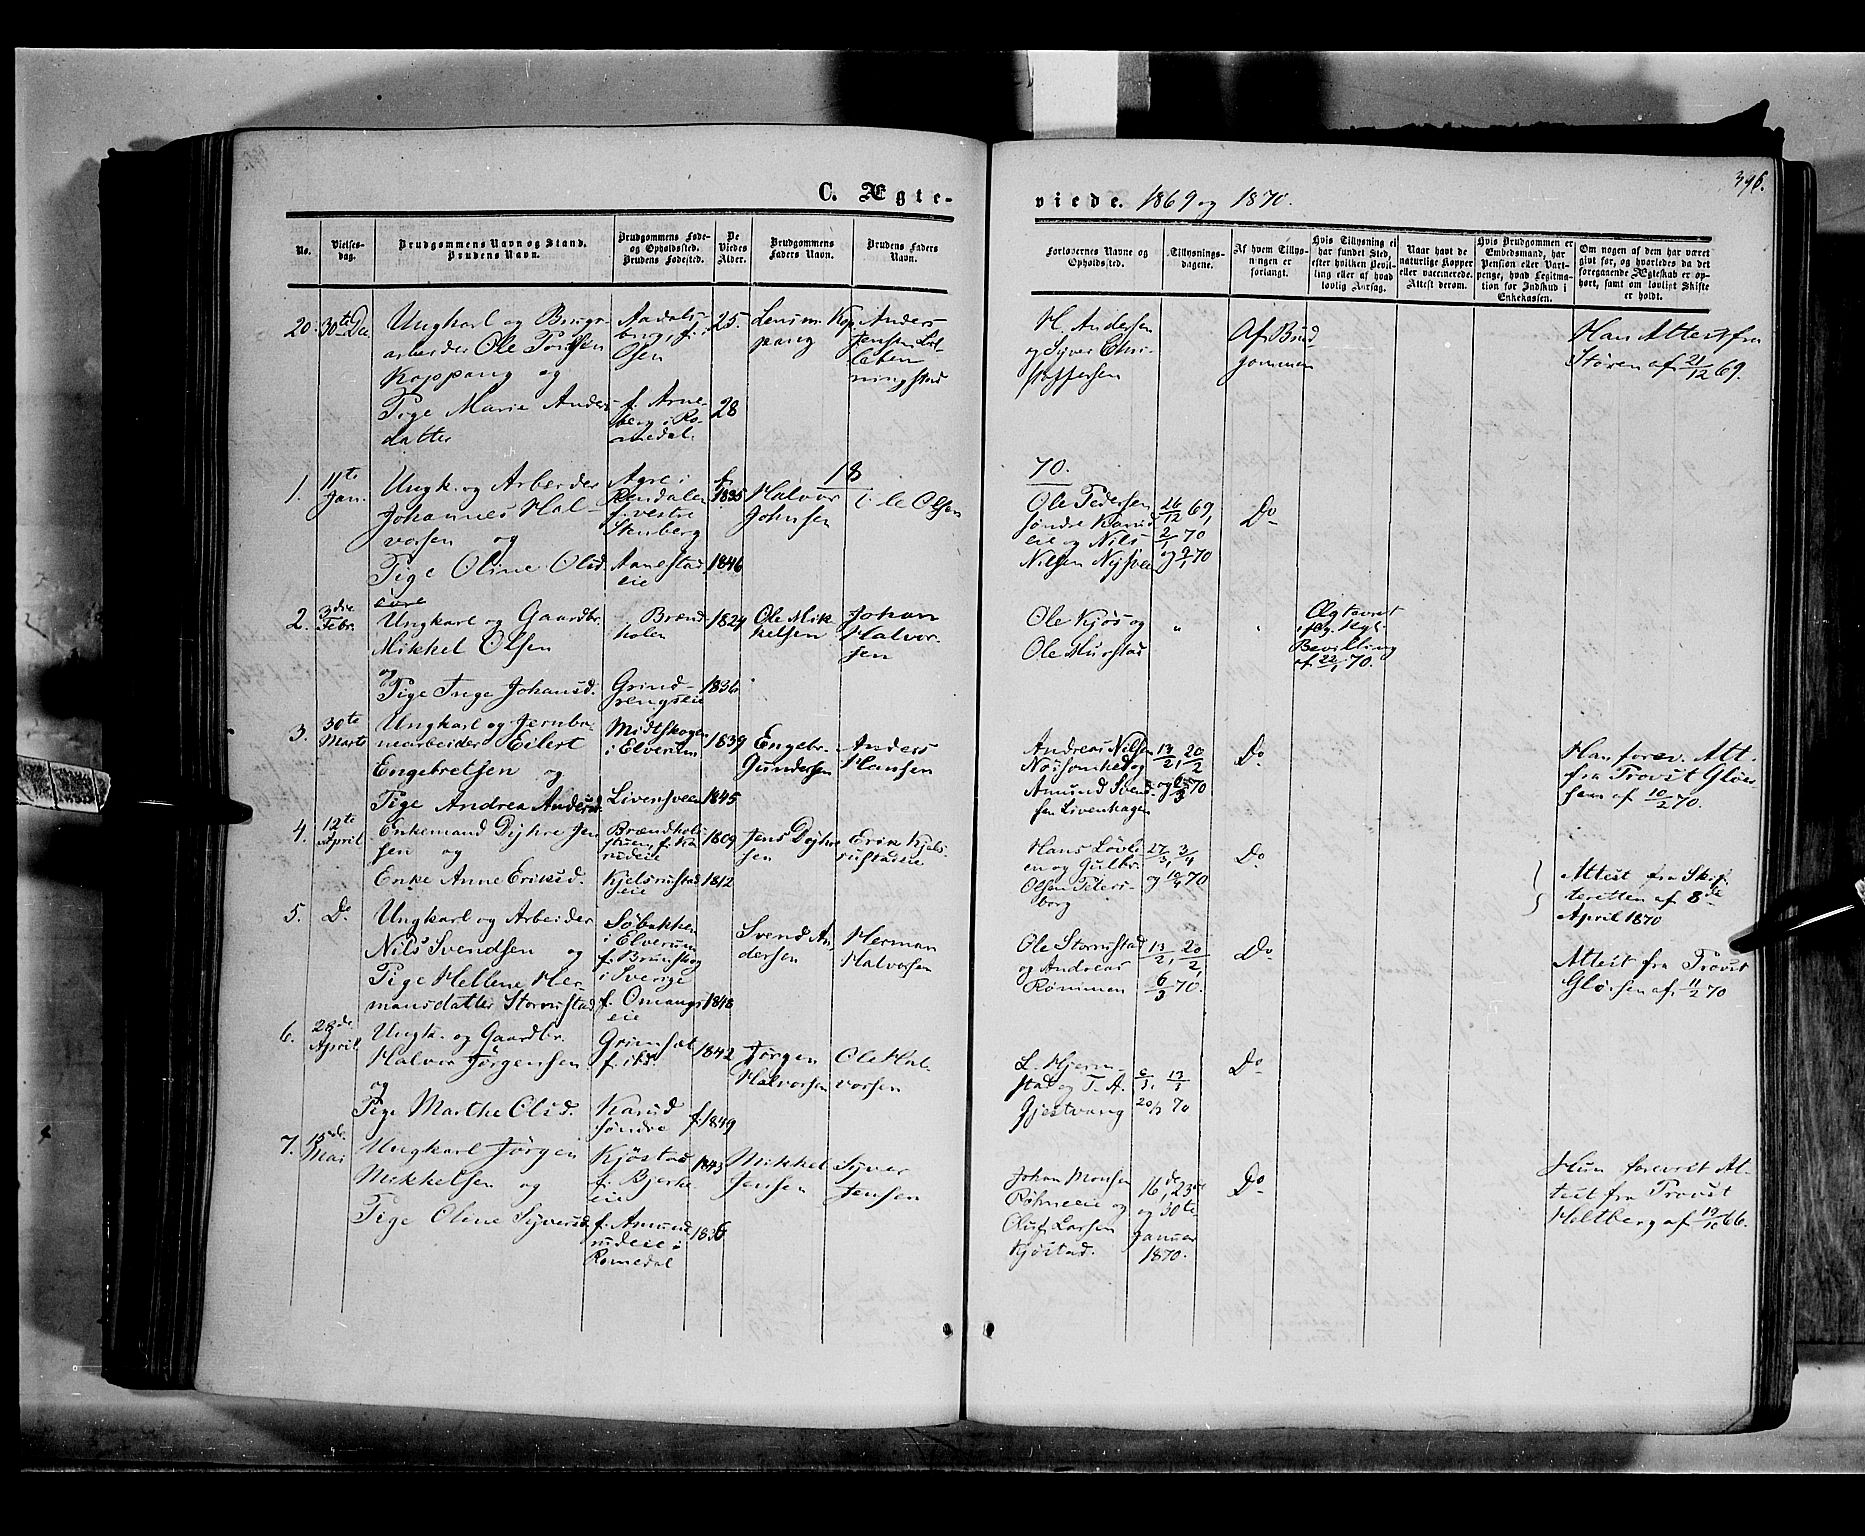 398.
C. Ægte-
viede. 1869 og 1870.
No.
Vielses-
dag.
Brudgommens Navn og Stand.
Brudens Navn.
Brudgommens Føde-
og Opholdssted.
Brudens Fødested.
De
Viedes
Alder.
Brudgommens
Faders Navn.
Brudens Faders
Navn.
Forlovernes Navne og
Opholdssted.
Tillysnings-
dagene.
Af hvem Tillys-
ningen er
forlangt.
Hvis Tillysning ei
har fundet Sted,
efter hvilken Bevil-
ling eller af hvad
lovlig Aarsag.
Naar havt de
naturlige Kopper
eller vaccinerede.
Attest derom.
Hvis Brudgommen er
Embedsmand, har
Pension eller Vart-
penge, hvad Legitima-
tion for Indskud i
Enkekassen.
Om nogen af dem har været
gift før, og hvorledes da det
foregaaende Ægteskab er op-
hørt, samt om lovligt Skifte
er holdt.
20.
30te De
Ungkarl og Brugs-
arbeider Ole
Koppang og
Pige Marie Anders
datter
Aadals-
brug, f. i
f. Arne-
berg i Ro-
medal.
25.
28
Kop
pang
Anders
Jensen
ningstad
H. Andersen
og Syver Chri-
stoffersen
Af Brud
gommen
Han Attest fra
Støren af 21/12 69.
18
70.
1.
11te
Jan.
Ungk. og Arbeider
Johannes Hal-
vorsen og
Pige Oline Olsd.
Agre i
Rendalen
f. vestre
Stenberg
Aanestad
eie
f.
1835
1846
Halvor
Johnsen
Ole Olsen
Ole Pedersen
søndre Karud
eie og Nils
Nilsen
26/12 69,
2/1 70
og 9/1 70
Do
2.
3die
Febr.
Ungkarl og Gaardbr.
Mikkel Olsen
og
Pige Inge Johansd.
Brænd
holen
Grind-
1824
1836
Ole Mik
kelsen
Johan
Halvor-
sen
Ole Kjøs og
Ole Hurstad
"
"
Ægteviet
ifølg. Kgl.
Bevilling
af 22/1 70.
3.
30te
Marts
Ungkarl og Jernba-
nearbeider Eilert
Engebretsen og
Pige Andrea Andersd.
Midtskogen
i Elverum
Livensveen
1839
1845
Engebr.
Gundersen
Anders
Hansen
Andreas Nilsen
og
Amund Svend-
sen Livenhagen
13/2, 20/2
og 6/3 70
Do
Han forev. Att.
fra Provst Glør-
sen af 10/2 70.
4.
12te
April
Enkemand Dyhre Jen
sen og
Enke Anne Eriksd.
Brændhol-
stuen, f. Ka
rudeie
Kjelsrustad
eie
1809
1812
Jens Dyhre
sen
Erik Kjels-
rustadeie
Hans Løvli
en og Gulbr.
Olsen Peters-
borg
27/3, 3/4
og 10/4 70
Do
Attest fra Skif-
teretten af 8de
April 1870
5.
Do
Ungkarl og Arbeider
Nils Svendsen og
Pige Hellene Her-
mansdatter Stornstad
Søbakken
i Elverum
f. Brunskog
i Sverige
f. Omangs
eie
1848
Svend An-
dersen
Herman
Halvorsen
Ole Stornstad
og Andreas
Rønimen
13/2, 20/2,
6/3 70.
Do
Attest fra Provst
Glørsen af 11/2 70
6.
28de
April
Ungk. og Gaardbr.
Halvor Jørgensen
og
Pige Marthe Olsd.
Grimset
f. ibd.
Karud
søndre
1842
f. 1849
Jørgen
Halvorsen
Ole Hal-
vorsen
L. Hjerm-
stad og T. A.
Gjestvang
6/1, 13/1
20/3 70
Do
7.
15de
Mai
Ungkarl Jørgen
Mikkelsen og
Pige Oline Syversd.
Kjøstad
f. Bjerke
eie
f. Amund
rudeie i
Romedal
1843
1836
Mikkel
Jensen
Syver
Jensen
Johan Monsen
Røhneeie og
Oluf Larsen
Kjøstad.
16de, 23de
og 30te
Januar
1870.
Do
Hun forevist At-
test fra Provst
Holtberg af 19/10 66.